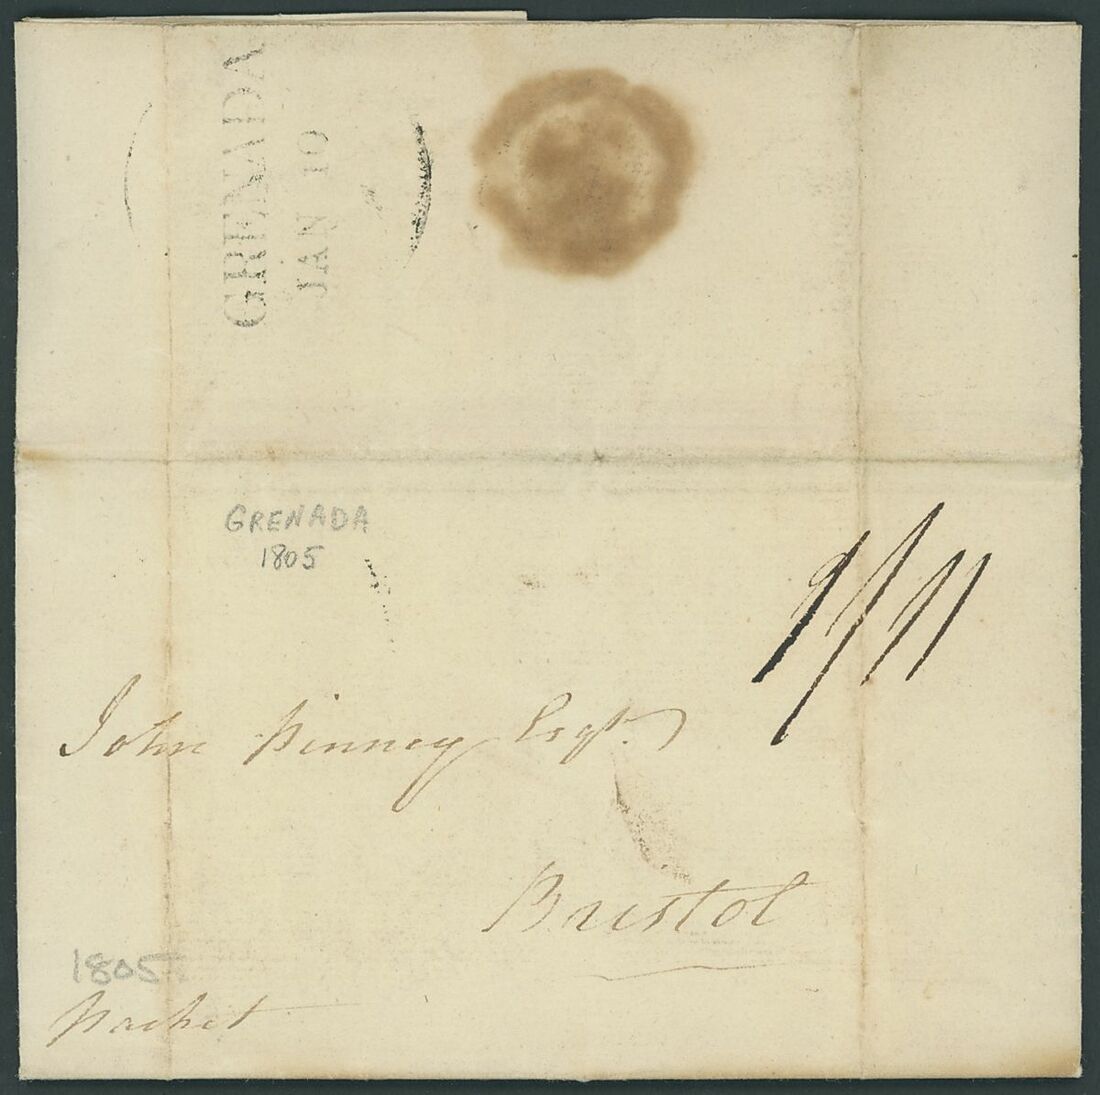 GRENADA
JAN 10
GRENADA
1805
1/11
John Pinney Esqr.
Bristol
1805
packet